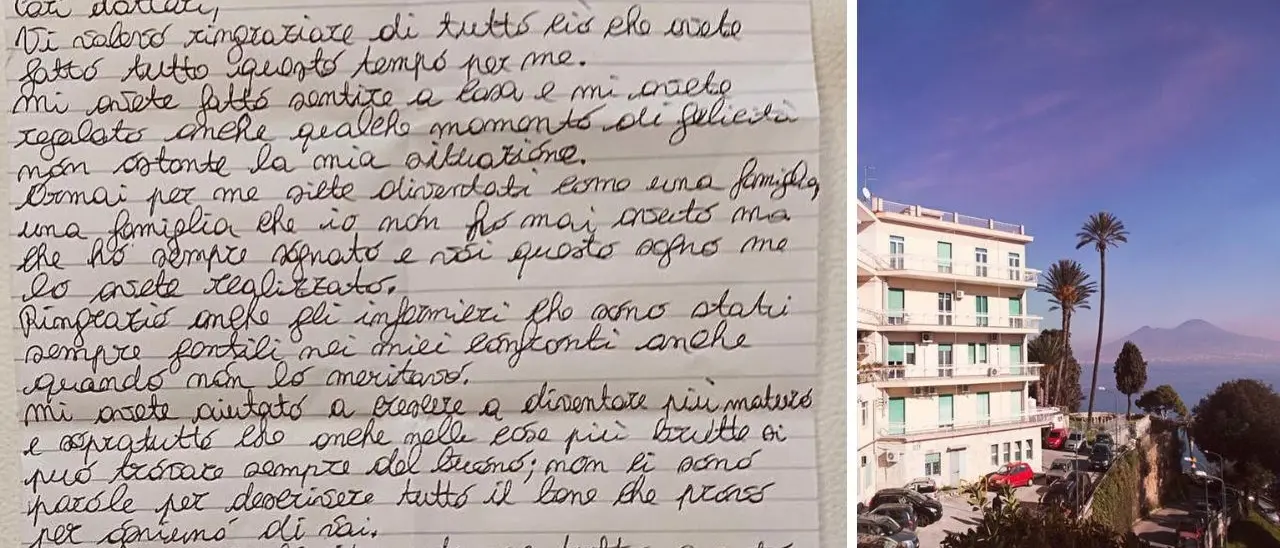 Cari dottori,
Vi volevo ringraziare di tutto ciò che avete
fatto tutto questo tempo per me.
Mi avete fatto sentire a casa e mi avete
regalato anche qualche momento di felicità
non ostante la mia situazione.
Ormai per me siete diventati come una famiglia,
una famiglia che io non ho mai avuto ma
che ho sempre sognato e voi questo sogno me
lo avete realizzato.
Ringrazio anche gli infermieri che sono stati
sempre gentili nei miei confronti anche
quando non lo meritavo.
Mi avete aiutato a crescere a diventare più maturo
e sopratutto che anche nelle cose più brutte si
può trovare sempre del buono; non ci sono
parole per descrivere tutto il bene che provo
per ogniuno di voi.